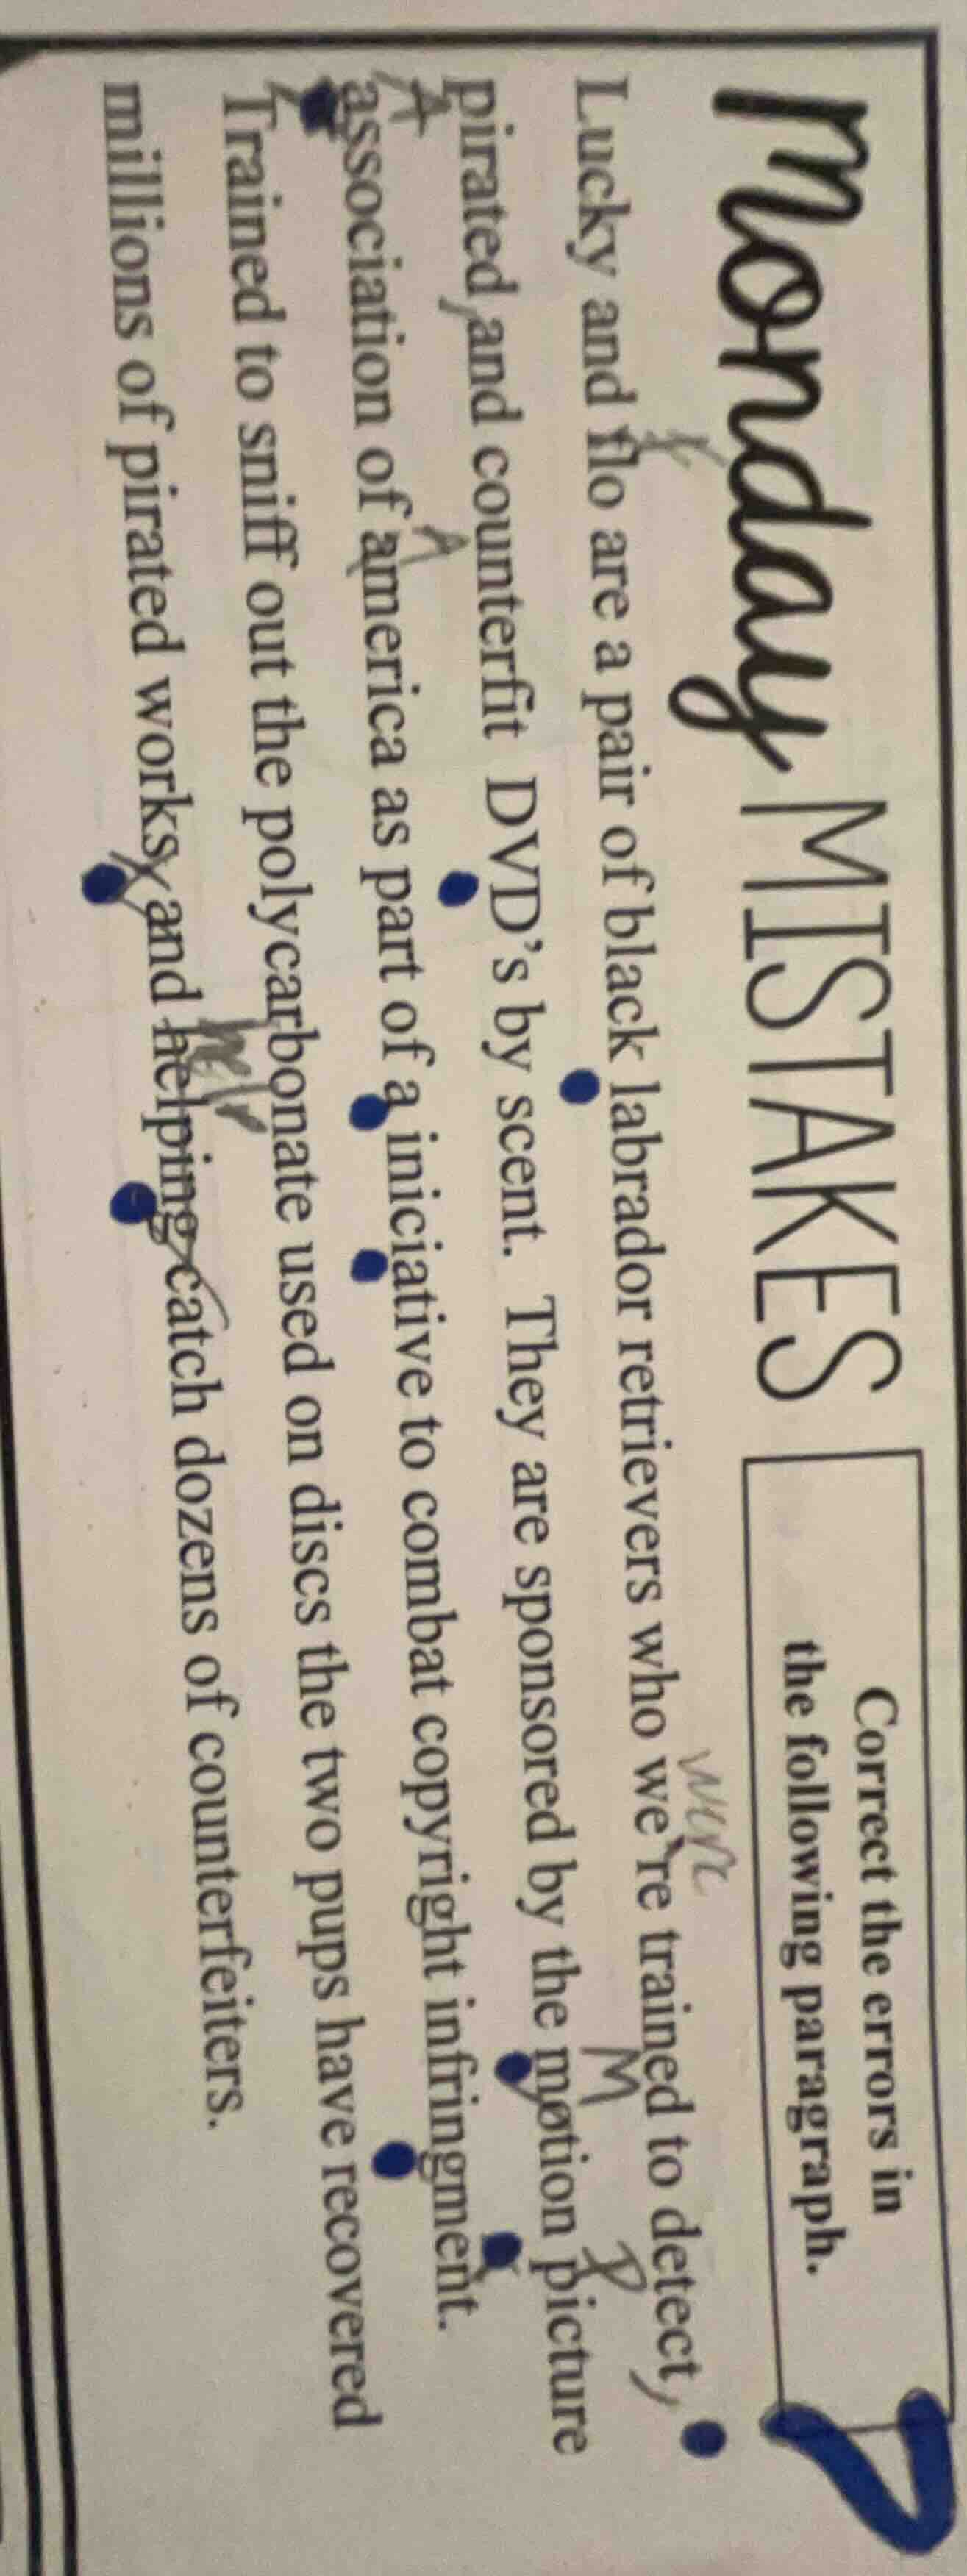 Monday MISTAKES
Correct the errors in
the following paragraph.
were
Lucky and flo are a pair of black labrador retrievers who we're trained to detect,
M P
pirated, and counterfit DVD's by scent. They are sponsored by the motion picture
A A
association of america as part of a iniciative to combat copyright infringment.
Trained to sniff out the polycarbonate used on discs the two pups have recovered
millions of pirated works, and helping catch dozens of counterfeiters.